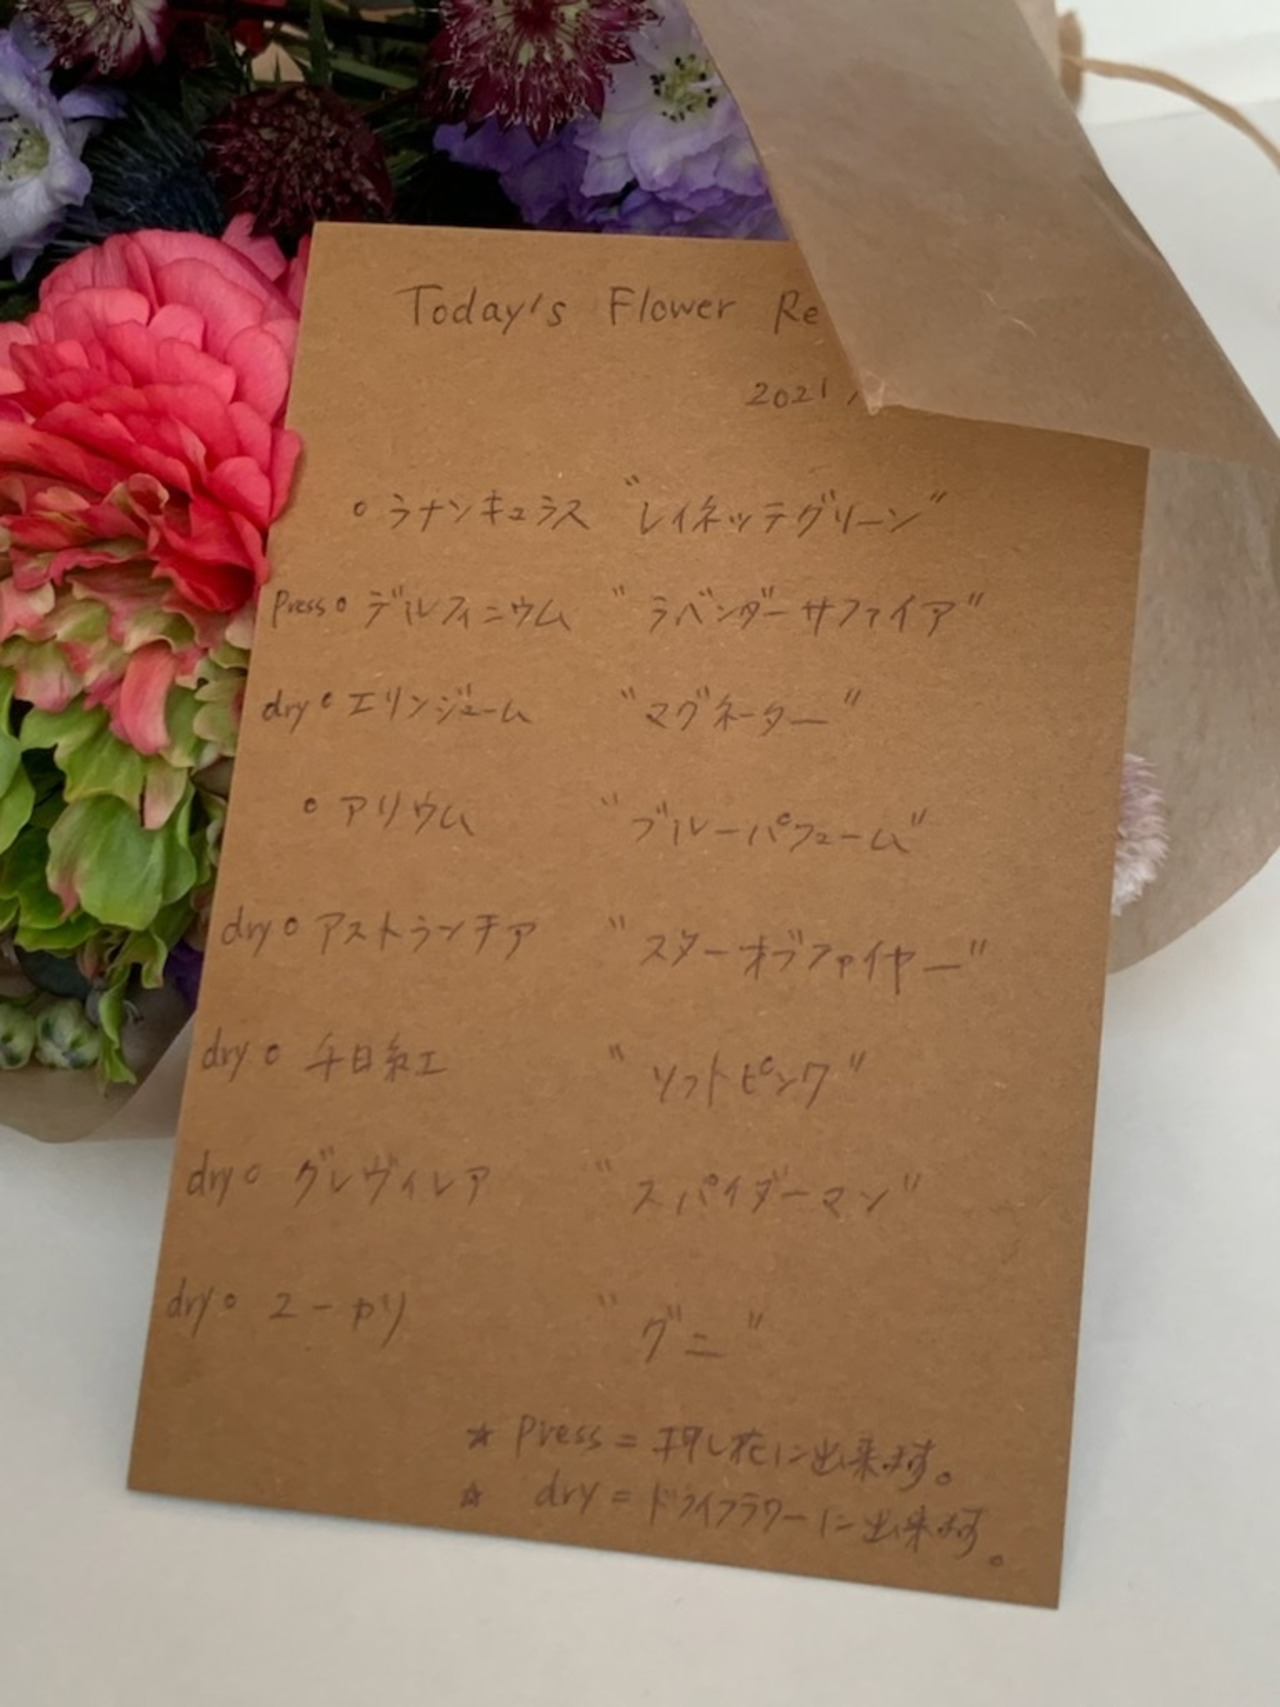 Today's Flower Re
2021
○ ラナンキュラス "レイネッテグリーン"
Press○ デルフィニウム "ラベンダーサファイア"
dry○ エリンジューム "マグネーター"
○ アリウム "ブルーパフューム"
dry○ アストランチア "スターオブファイヤー"
dry○ 千日紅 "ソフトピンク"
dry○ グレヴィレア "スパイダーマン"
dry○ ユーカリ "グニ"
☆ Press = 押し花に出来ます。
☆ dry = ドライフラワーに出来ます。